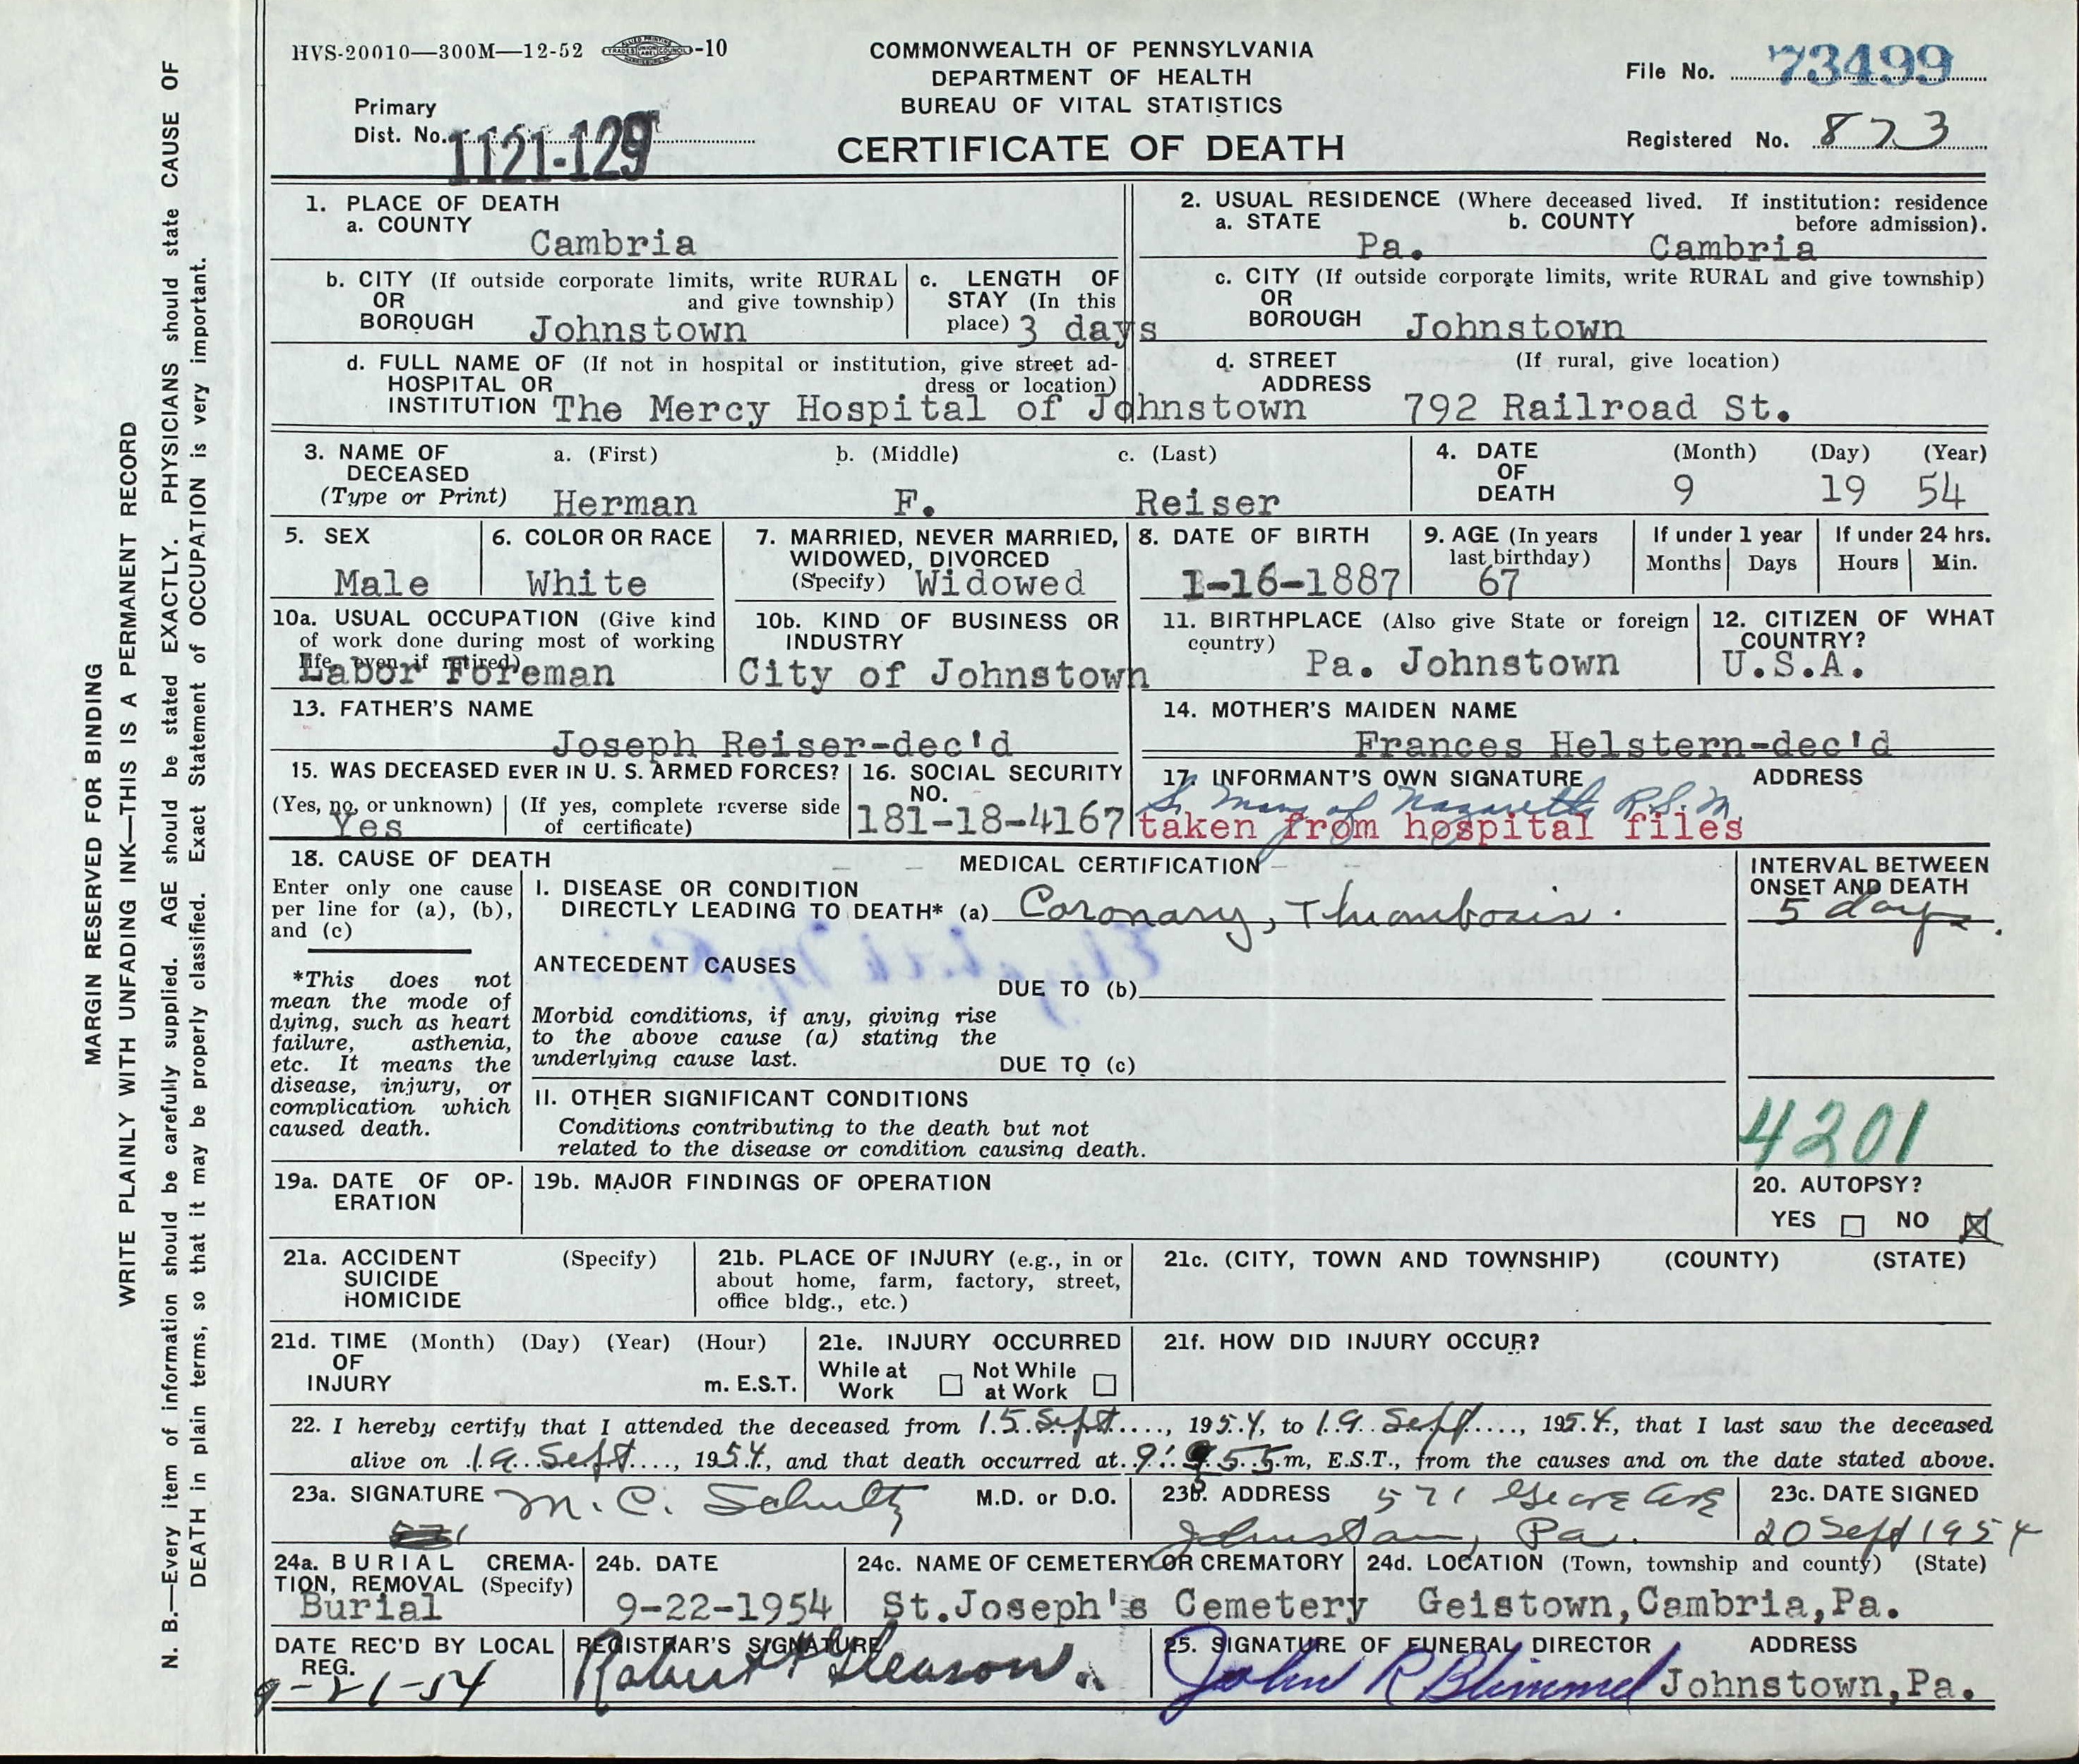 HVS-20010—300M—12-52 -10
COMMONWEALTH OF PENNSYLVANIA
DEPARTMENT OF HEALTH
BUREAU OF VITAL STATISTICS
CERTIFICATE OF DEATH
File No. 73499
Registered No. 873
Primary
Dist. No. 1121-129
MARGIN RESERVED FOR BINDING
WRITE PLAINLY WITH UNFADING INK—THIS IS A PERMANENT RECORD
N. B.—Every item of information should be carefully supplied. AGE should be stated EXACTLY. PHYSICIANS should state CAUSE OF
DEATH in plain terms, so that it may be properly classified. Exact Statement of OCCUPATION is very important.
1. PLACE OF DEATH
a. COUNTY
Cambria
2. USUAL RESIDENCE (Where deceased lived. If institution: residence
a. STATE b. COUNTY before admission).
Pa. Cambria
b. CITY (If outside corporate limits, write RURAL
OR and give township)
BOROUGH Johnstown
c. LENGTH OF
STAY (In this
place) 3 days
c. CITY (If outside corporate limits, write RURAL and give township)
OR
BOROUGH Johnstown
d. FULL NAME OF (If not in hospital or institution, give street ad-
HOSPITAL OR dress or location)
INSTITUTION The Mercy Hospital of Johnstown
d. STREET (If rural, give location)
ADDRESS
792 Railroad St.
3. NAME OF a. (First) b. (Middle) c. (Last)
DECEASED
(Type or Print) Herman F. Reiser
4. DATE (Month) (Day) (Year)
OF
DEATH 9 19 54
5. SEX
Male
6. COLOR OR RACE
White
7. MARRIED, NEVER MARRIED,
WIDOWED, DIVORCED
(Specify) Widowed
8. DATE OF BIRTH
1-16-1887
9. AGE (In years
last birthday)
67
If under 1 year
Months Days
If under 24 hrs.
Hours Min.
10a. USUAL OCCUPATION (Give kind
of work done during most of working
life, even if retired)
Labor Foreman
10b. KIND OF BUSINESS OR
INDUSTRY
City of Johnstown
11. BIRTHPLACE (Also give State or foreign
country)
Pa. Johnstown
12. CITIZEN OF WHAT
COUNTRY?
U.S.A.
13. FATHER'S NAME
Joseph Reiser-dec'd
14. MOTHER'S MAIDEN NAME
Frances Helstern-dec'd
15. WAS DECEASED EVER IN U. S. ARMED FORCES?
(Yes, no, or unknown) (If yes, complete reverse side
of certificate)
Yes
16. SOCIAL SECURITY
NO.
181-18-4167
17. INFORMANT'S OWN SIGNATURE ADDRESS
S. Mary of Nazareth R.S.M.
taken from hospital files
18. CAUSE OF DEATH
Enter only one cause
per line for (a), (b),
and (c)
*This does not
mean the mode of
dying, such as heart
failure, asthenia,
etc. It means the
disease, injury, or
complication which
caused death.
MEDICAL CERTIFICATION
I. DISEASE OR CONDITION
DIRECTLY LEADING TO DEATH* (a) Coronary, Thrombosis.
ANTECEDENT CAUSES
DUE TO (b)
Morbid conditions, if any, giving rise
to the above cause (a) stating the
underlying cause last.
DUE TO (c)
II. OTHER SIGNIFICANT CONDITIONS
Conditions contributing to the death but not
related to the disease or condition causing death.
INTERVAL BETWEEN
ONSET AND DEATH
5 days.
4201
19a. DATE OF OP-
ERATION
19b. MAJOR FINDINGS OF OPERATION
20. AUTOPSY?
YES NO X
21a. ACCIDENT (Specify)
SUICIDE
HOMICIDE
21b. PLACE OF INJURY (e.g., in or
about home, farm, factory, street,
office bldg., etc.)
21c. (CITY, TOWN AND TOWNSHIP) (COUNTY) (STATE)
21d. TIME (Month) (Day) (Year) (Hour)
OF
INJURY m. E.S.T.
21e. INJURY OCCURRED
While at Not While
Work at Work
21f. HOW DID INJURY OCCUR?
22. I hereby certify that I attended the deceased from 15 Sept., 1954, to 19 Sept., 1954, that I last saw the deceased
alive on 19 Sept., 1954, and that death occurred at 9:55 m, E.S.T., from the causes and on the date stated above.
23a. SIGNATURE M. C. Schultz M.D. or D.O.
23b. ADDRESS 571
Johnstown, Pa.
23c. DATE SIGNED
20 Sept 1954
24a. BURIAL CREMA-
TION, REMOVAL (Specify)
Burial
24b. DATE
9-22-1954
24c. NAME OF CEMETERY OR CREMATORY
St.Joseph's Cemetery
24d. LOCATION (Town, township and county) (State)
Geistown,Cambria,Pa.
DATE REC'D BY LOCAL
REG.
9-21-54
REGISTRAR'S SIGNATURE
Robert Gleason.
25. SIGNATURE OF FUNERAL DIRECTOR ADDRESS
John R Blimmel Johnstown,Pa.